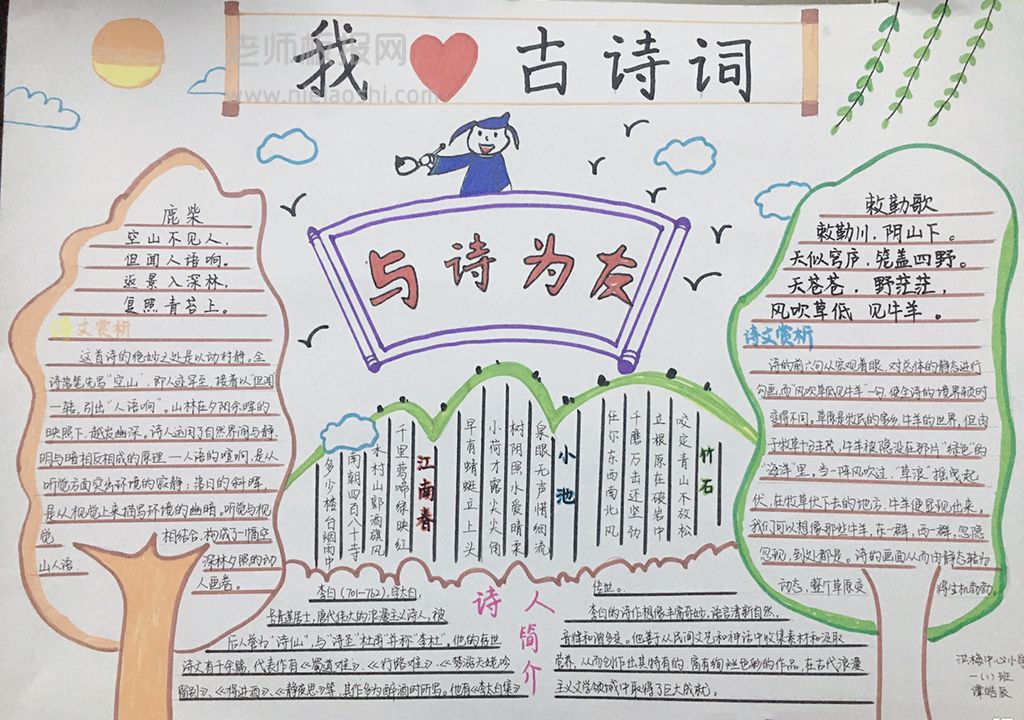 我 古诗词
老师板报网
与诗为友
鹿柴
空山不见人，
但闻人语响。
返景入深林，
复照青苔上。
诗文赏析
这首诗的绝妙之处是以动衬静，全
诗落笔先写“空山”，即人迹罕至，接着以“但闻”
一转，引出“人语响”。山林在夕阳余晖的
映照下，越发幽深。诗人运用了自然界闹与静、
明与暗相反相成的原理——人语的喧响，是从
听觉方面突出环境的寂静；落日的斜晖，
是从视觉上来描写环境的幽暗。听觉与视
觉 相结合，构成了一幅空
山人语、 深林夕照的动
人画卷。
竹石
咬定青山不放松
立根原在破岩中
千磨万击还坚劲
任尔东西南北风
小池
泉眼无声惜细流
树阴照水爱晴柔
小荷才露尖尖角
早有蜻蜓立上头
江南春
千里莺啼绿映红
水村山郭酒旗风
南朝四百八十寺
多少楼台烟雨中
敕勒歌
敕勒川，阴山下。
天似穹庐，笼盖四野。
天苍苍，野茫茫，
风吹草低 见牛羊。
诗文赏析
诗的前六句从宏观着眼，对总体的静态进行
勾画，而“风吹草低见牛羊”一句，使全诗的境界顿时
变得不同，草原是牧民的家乡，牛羊的世界，但由
于牧草十分丰茂，牛羊被隐没在那片“绿色”的
“海洋”里。当一阵风吹过，“草浪”摇曳起
伏，在牧草伏下去的地方，牛羊便显现出来，
我们可以想像那些牛羊，东一群，西一群，忽隐
忽现，到处都是。诗的画面从而由静态转为
动态，整个草原变 得生机勃勃。
诗人简介
李白（701-762），字太白，
号青莲居士，唐代伟大的浪漫主义诗人，被
后人誉为“诗仙”，与“诗圣”杜甫并称“李杜”，他的存世
诗文有千余篇，代表作有《蜀道难》、《行路难》、《梦游天姥吟
留别》、《将进酒》、《静夜思》等，其作多为醉酒时所写。他有《李太白集》
传世。
李白的诗作想像丰富奇妙，语言清新自然，
音律和谐多变。他善于从民间文艺和神话中收集素材和汲取
营养，从而创作出其特有的、富有绚烂色彩的作品，在古代浪漫
主义文学领域中取得了巨大成就。
洪梅中心小学
一（1）班
谭皓辰